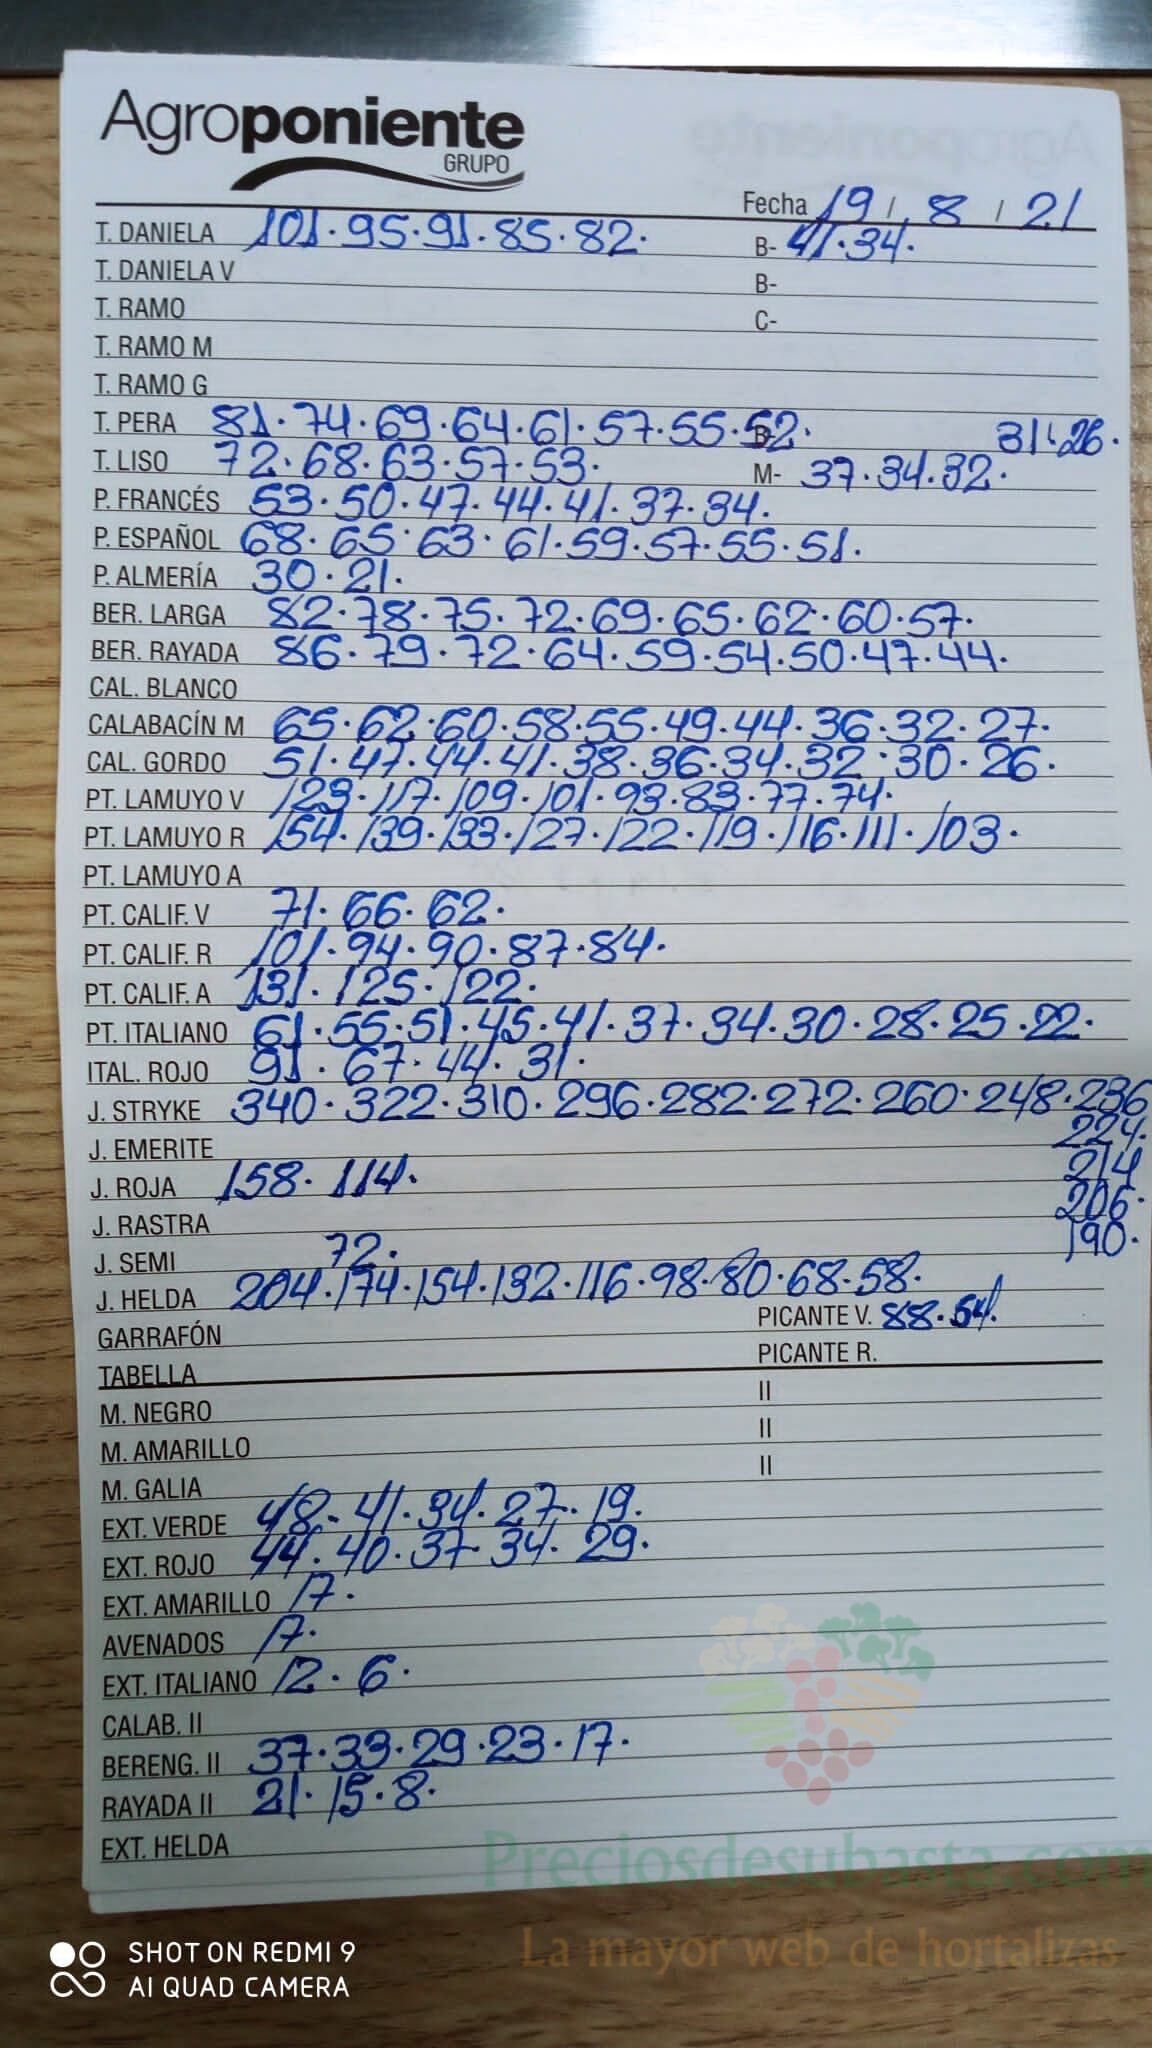 Agroponiente
GRUPO
Fecha 19 / 8 / 21
T. DANIELA 101.95.91.85.82. B- 41.34.
T. DANIELA V B-
T. RAMO C-
T. RAMO M
T. RAMO G
T. PERA 81.74.69.64.61.57.55.52. B- 31.26.
T. LISO 72.68.63.57.53. M- 37.34.32.
P. FRANCÉS 53.50.47.44.41.37.34.
P. ESPAÑOL 68.65.63.61.59.57.55.51.
P. ALMERÍA 30.21.
BER. LARGA 82.78.75.72.69.65.62.60.57.
BER. RAYADA 86.79.72.64.59.54.50.47.44.
CAL. BLANCO
CALABACÍN M 65.62.60.58.55.49.44.36.32.27.
CAL. GORDO 51.47.44.41.38.36.34.32.30.26.
PT. LAMUYO V 123.117.109.101.93.83.77.74.
PT. LAMUYO R 154.139.133.127.122.119.116.111.103.
PT. LAMUYO A
PT. CALIF. V 71.66.62.
PT. CALIF. R 101.94.90.87.84.
PT. CALIF. A 131.125.122.
PT. ITALIANO 61.55.51.45.41.37.34.30.28.25.22.
ITAL. ROJO 91.67.44.31.
J. STRYKE 340.322.310.296.282.272.260.248.236
J. EMERITE 224.
J. ROJA 158.114. 214
J. RASTRA 206.
J. SEMI 72. 190.
J. HELDA 204.174.154.132.116.98.80.68.58.
GARRAFÓN PICANTE V. 88.54.
TABELLA PICANTE R.
M. NEGRO II
M. AMARILLO II
M. GALIA II
EXT. VERDE 48.41.34.27.19.
EXT. ROJO 44.40.37.34.29.
EXT. AMARILLO 17.
AVENADOS 17.
EXT. ITALIANO 12.6.
CALAB. II
BERENG. II 37.33.29.23.17.
RAYADA II 21.15.8.
EXT. HELDA
Preciosdesubasta.com
La mayor web de hortalizas
SHOT ON REDMI 9
AI QUAD CAMERA